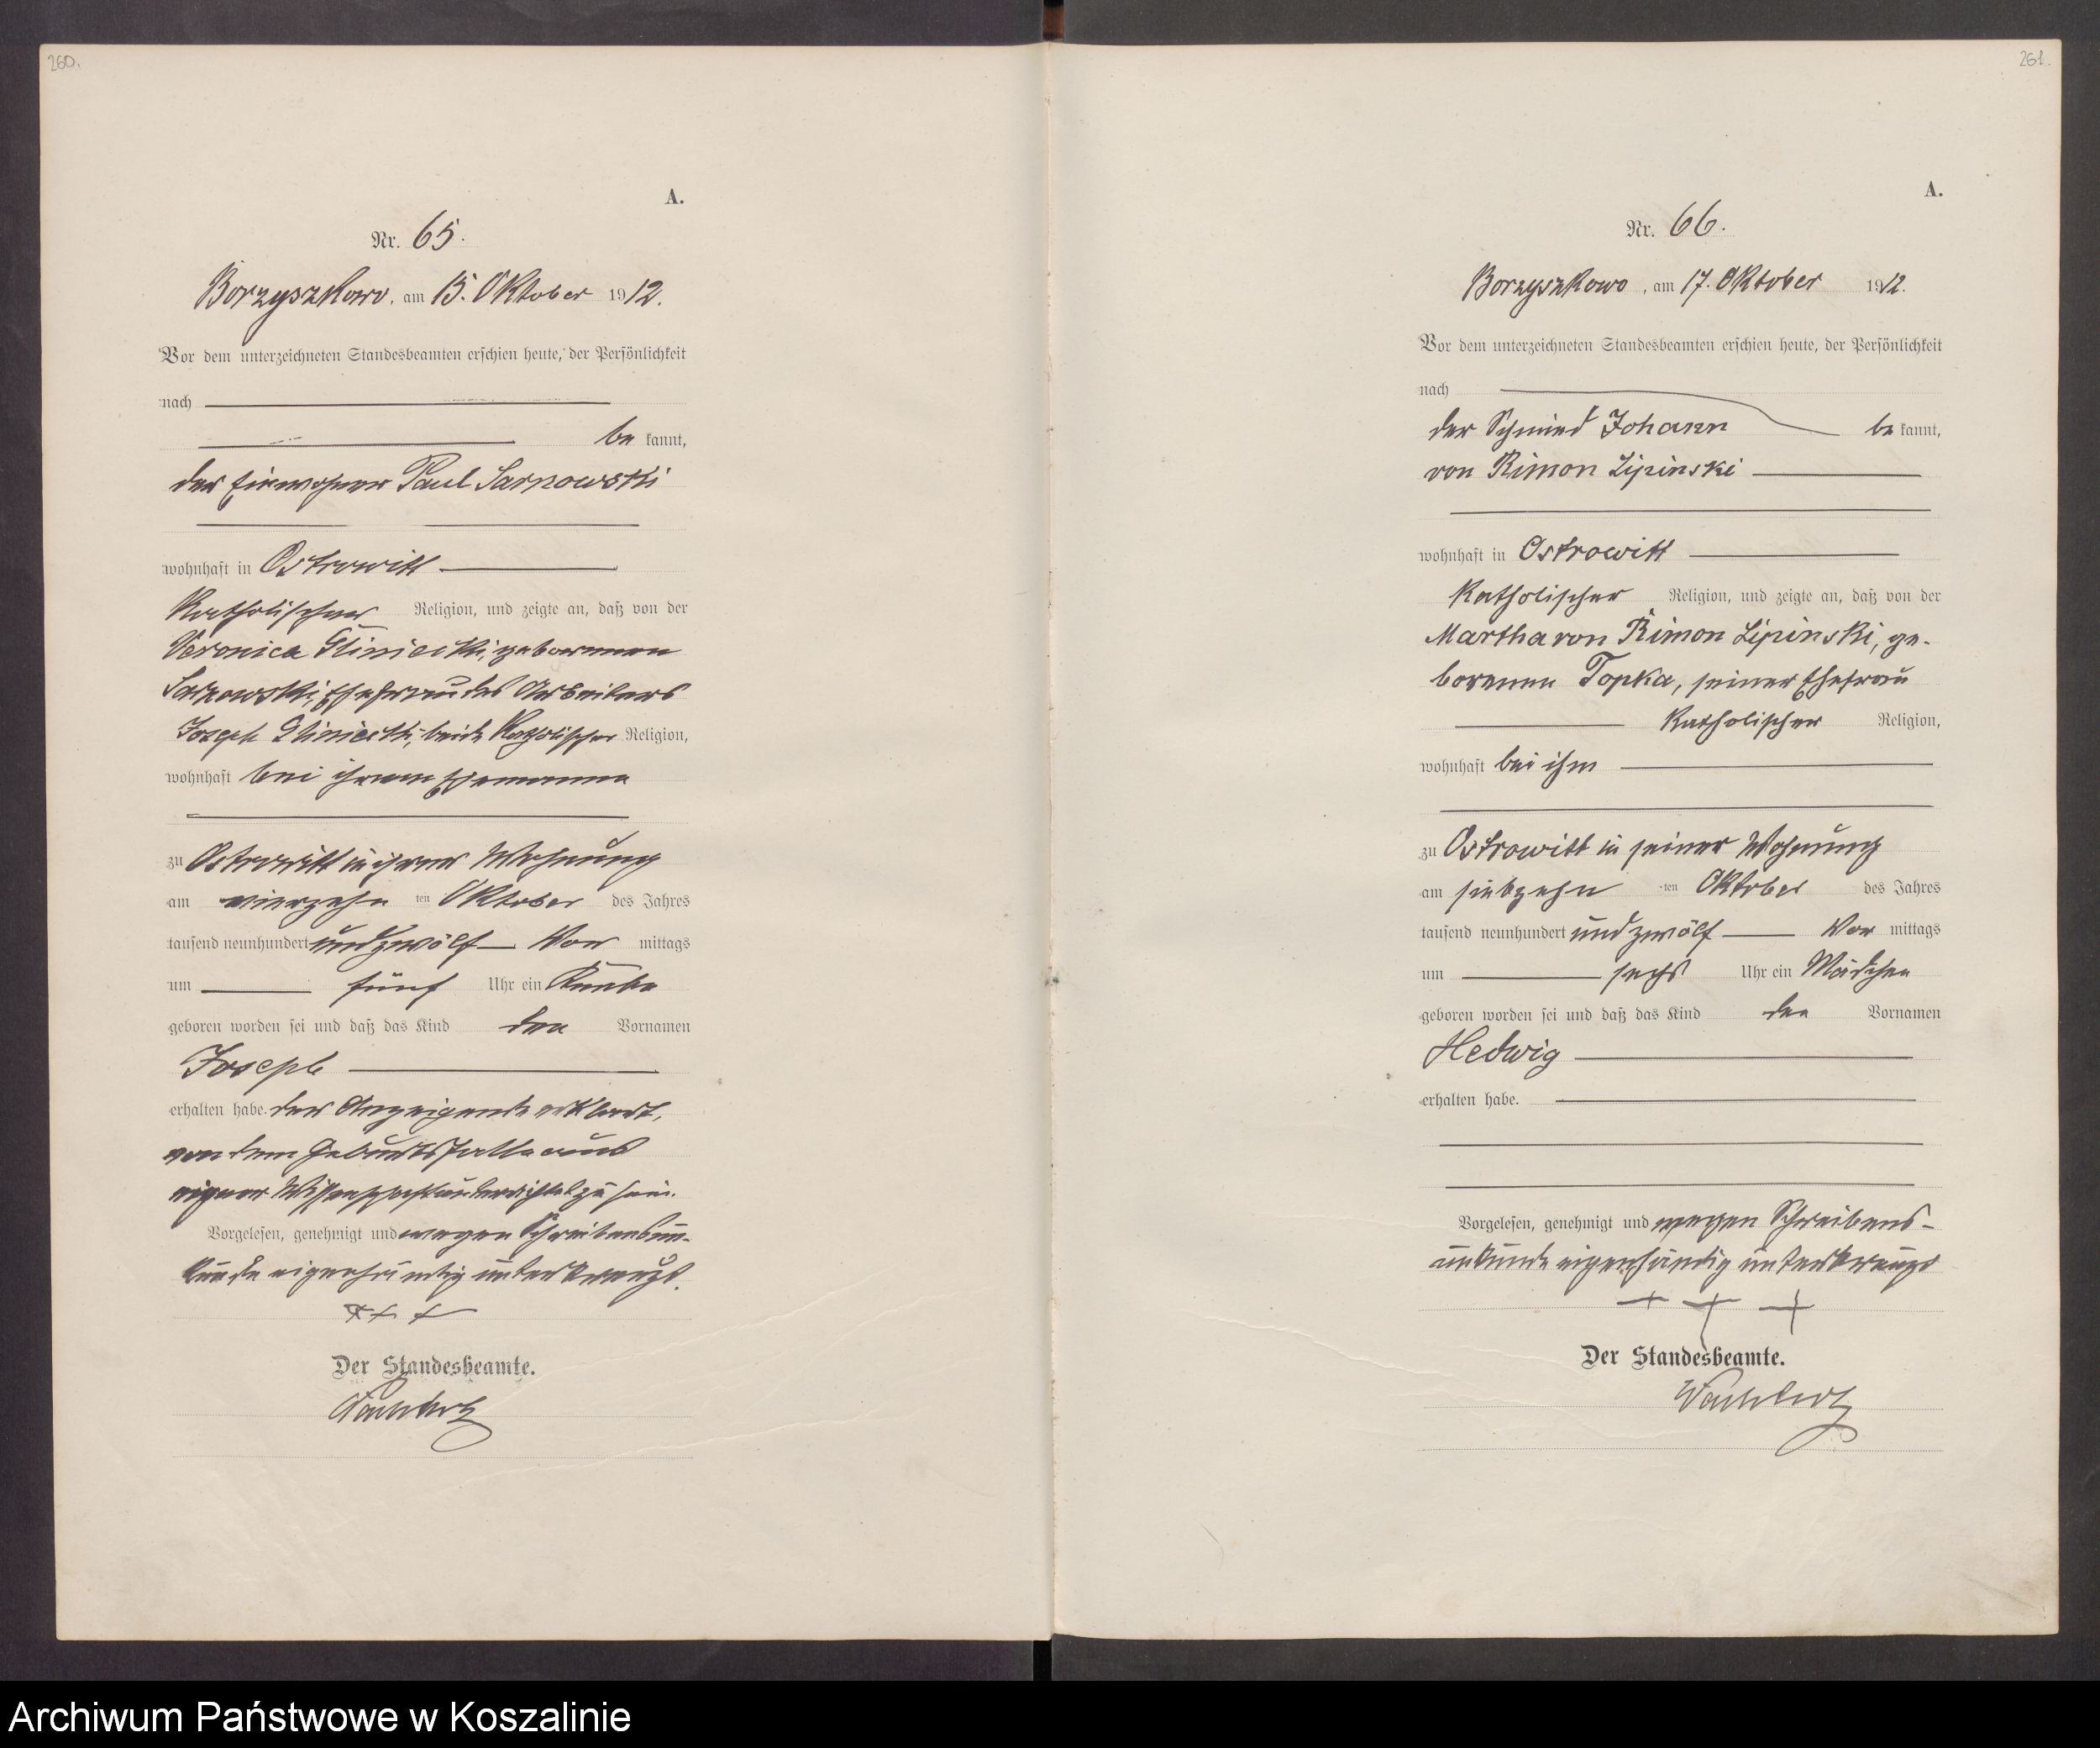 260.
A.
Nr. 65.
Borzyszkowo, am 15. Oktober 1912.
Vor dem unterzeichneten Standesbeamten erschien heute, der Persönlichkeit
nach
be kannt,
der Einwohner Paul Sarnowski
wohnhaft in Ostrowitt
Katholischer Religion, und zeigte an, daß von der
Veronica Gliniecki, geborenen
Sarnowski, Ehefrau des Arbeiters
Joseph Gliniecki, beide Katholischer Religion,
wohnhaft bei ihrem Ehemanne
zu Ostrowitt in ihrer Wohnung
am vierzehn ten Oktober des Jahres
tausend neunhundert und zwölf Vor mittags
um fünf Uhr ein Knabe
geboren worden sei und daß das Kind den Vornamen
Joseph
erhalten habe. Der Anzeigende erklärt,
von dem Geburtsfalle aus
eigener Wissenschaft unterrichtet zu sein.
Vorgelesen, genehmigt und wegen Schreibensun-
kunde eigenhändig unterkreuzt.
+ + +
Der Standesbeamte.
261.
A.
Nr. 66.
Borzyszkowo, am 17. Oktober 1912.
Vor dem unterzeichneten Standesbeamten erschien heute, der Persönlichkeit
nach
der Schmied Johann be kannt,
von Rimon Lipinski
wohnhaft in Ostrowitt
Katholischer Religion, und zeigte an, daß von der
Martha von Rimon Lipinski, ge-
borenen Topka, seiner Ehefrau
Katholischer Religion,
wohnhaft bei ihm
zu Ostrowitt in seiner Wohnung
am siebzehn ten Oktober des Jahres
tausend neunhundert und zwölf Vor mittags
um sechs Uhr ein Mädchen
geboren worden sei und daß das Kind den Vornamen
Hedwig
erhalten habe.
Vorgelesen, genehmigt und wegen Schreibens-
unkunde eigenhändig unterkreuzt
+ + +
Der Standesbeamte.
Archiwum Państwowe w Koszalinie